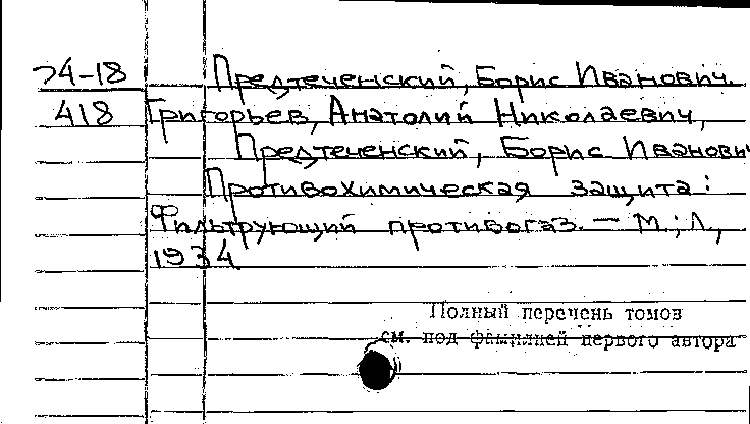 74-18 Предтеченский, Борис Иванович.
418 Григорьев, Анатолий Николаевич,
Предтеченский, Борис Иванови
Противохимическая защита:
Фильтрующий противогаз. — М.; Л.,
1934
Полный перечень томов
см. под фамилией первого автора